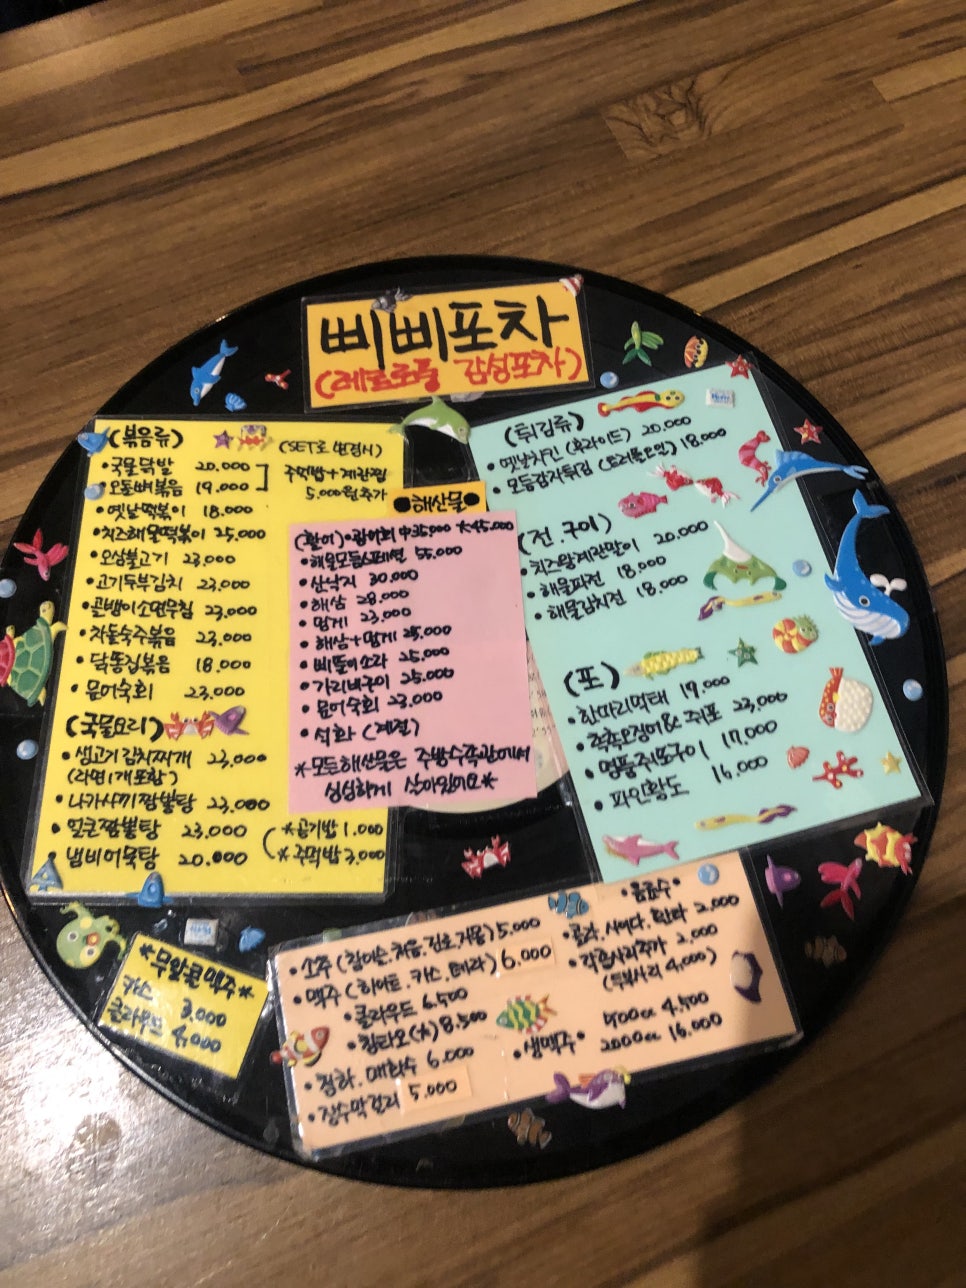 삐삐포차
(레트로풍 감성포차)
(볶음류)
(SET로 변경시)
주먹밥+계란찜
5,000원추가
•국물닭발 20,000
•오돌뼈볶음 19,000
•옛날떡볶이 18,000
•치즈해물떡볶이 25,000
•오삼불고기 23,000
•고기두부김치 23,000
•골뱅이소면무침 23,000
•차돌숙주볶음 23,000
•닭똥집볶음 18,000
•문어숙회 23,000
(국물요리)
•생고기김치찌개 23,000
(라면1개포함)
•나가사끼짬뽕탕 23,000
•얼큰짬뽕탕 23,000
•냄비어묵탕 20,000
*공기밥 1,000
*주먹밥 3,000
•해산물•
(활어)•광어회 中35,000 大45,000
•해물모듬스페셜 55,000
•산낙지 30,000
•해삼 28,000
•멍게 23,000
•해삼+멍게 25,000
•삐뚤이소라 25,000
•가리비구이 25,000
•문어숙회 23,000
•석화 (계절)
*모든해산물은 주방수족관에서
싱싱하게 살아있어요*
(튀김류)
•옛날치킨 (후라이드) 20,000
•모듬감자튀김 (트러플오일) 18,000
(전.구이)
•치즈왕계란말이 20,000
•해물파전 18,000
•해물김치전 18,000
(포)
•한마리먹태 19,000
•촉촉오징어& 쥐포 23,000
•명품쥐포구이 17,000
•파인황도 16,000
*무알콜맥주*
카스 3,000
클라우드 4,000
•소주 (참이슬,처음,진로,새로) 5,000
•맥주 (하이트.카스.테라) 6,000
•클라우드 6,500
•칭타오(大) 8,500
•청하.매화수 6,000
•장수막걸리 5,000
•음료수•
•콜라.사이다.환타 2,000
•각종사리추가 2,000
(두부사리 4,000)
•생맥주•
400cc 4,500
2000cc 16,000